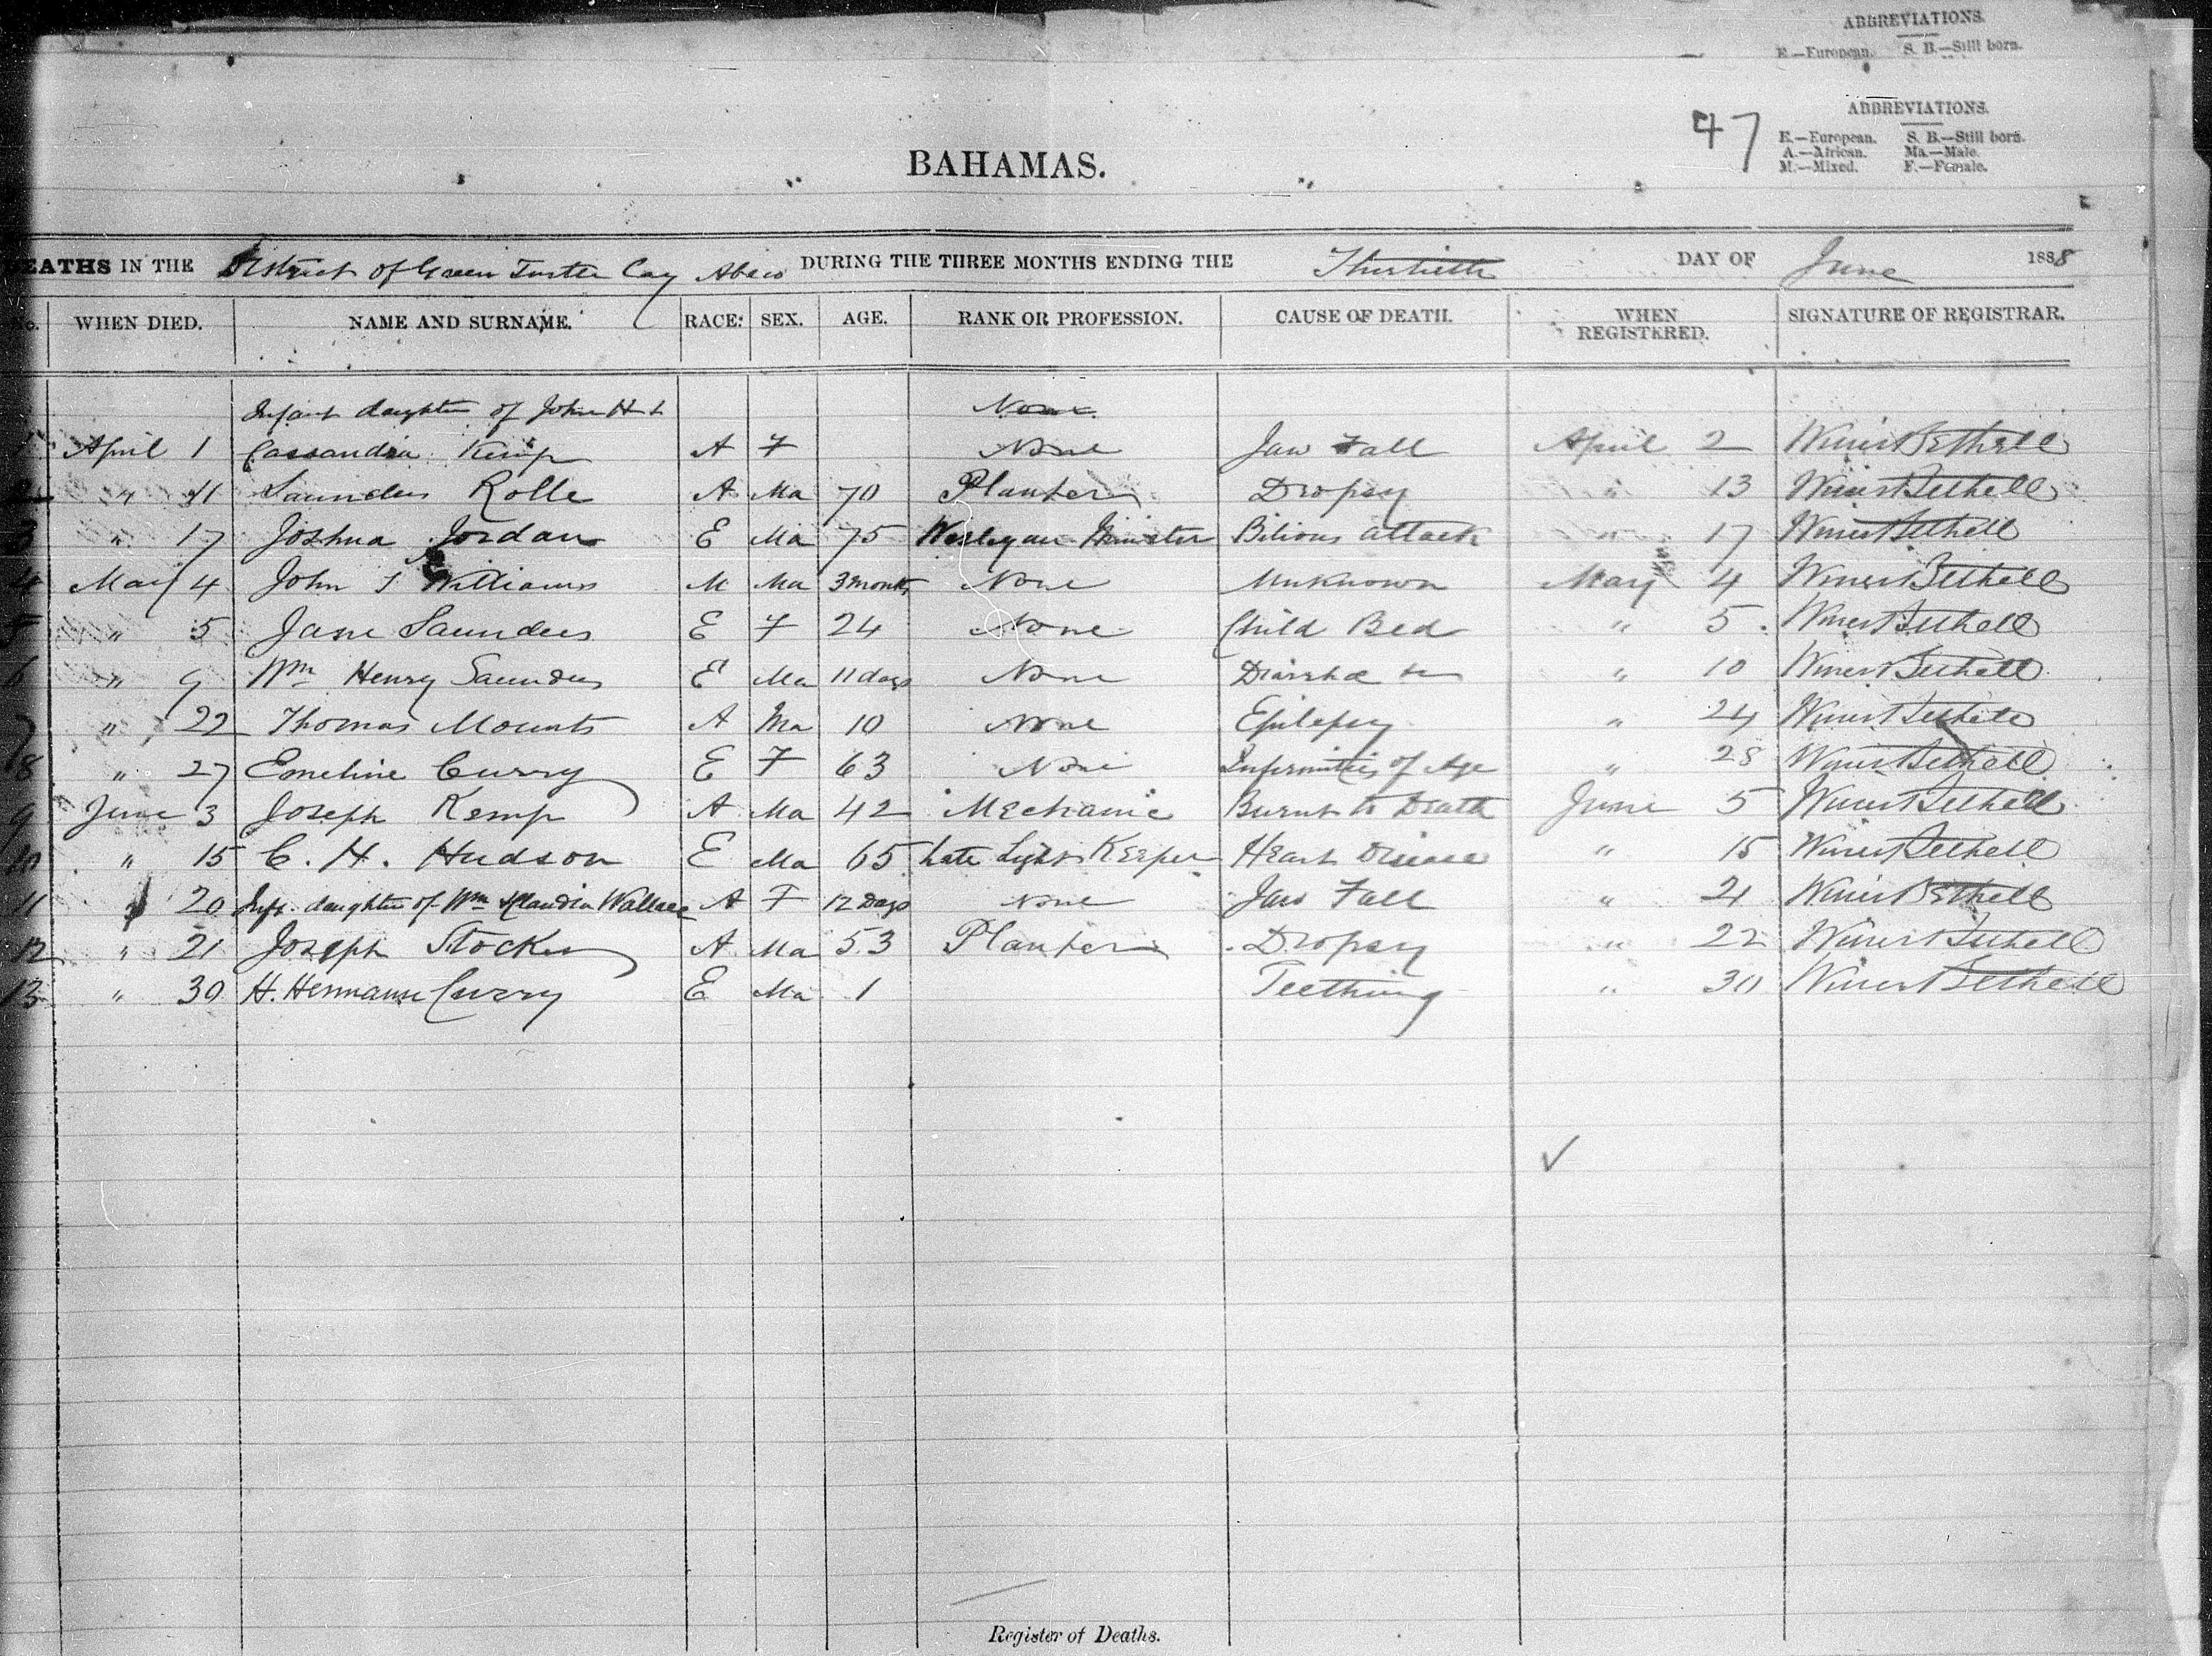 ABBREVIATIONS.
E.—European. S. B.—Still born.
ABBREVIATIONS.
47
E.—European. S. B.—Still born.
A.—African. Ma.—Male.
M.—Mixed. F.—Female.
BAHAMAS.
DEATHS IN THE District of Green Turtle Cay Abaco DURING THE THREE MONTHS ENDING THE Thirtieth DAY OF June 1888
No. WHEN DIED. NAME AND SURNAME. RACE. SEX. AGE. RANK OR PROFESSION. CAUSE OF DEATH. WHEN REGISTERED. SIGNATURE OF REGISTRAR.
Infant daughter of John H & None
1 April 1 Cassandra Kemp A F None Jaw Fall April 2 Winer Bethell
2 " 11 Saunders Rolle A Ma 70 Planter Dropsy " 13 Winer Bethell
3 " 17 Joshua Jordan E Ma 75 Wesleyan Minister Bilious attack " 17 Winer Bethell
4 May 4 John S Williams M Ma 3 months None Unknown May 4 Winer Bethell
5 " 5 Jane Saunders E F 24 None Child Bed " 5 Winer Bethell
6 " 9 Wm Henry Saunders E Ma 11 days None " 10 Winer Bethell
7 " 22 Thomas Mounts A Ma 10 None Epilepsy " 24 Winer Bethell
8 " 27 Emeline Curry E F 63 None Infirmities of Age " 28 Winer Bethell
9 June 3 Joseph Kemp A Ma 42 Mechanic Burnt to Death June 5 Winer Bethell
10 " 15 C. H. Hudson E Ma 65 Late Light Keeper Heart Disease " 15 Winer Bethell
11 " 20 Inft. daughter of Wm & Claudia Wallace A F 12 Days None Jaw Fall " 21 Winer Bethell
12 " 21 Joseph Stocker A Ma 53 Planter Dropsy " 22 Winer Bethell
13 " 30 H. Hermanse Curry E Ma 1 Teething " 30 Winer Bethell
Register of Deaths.